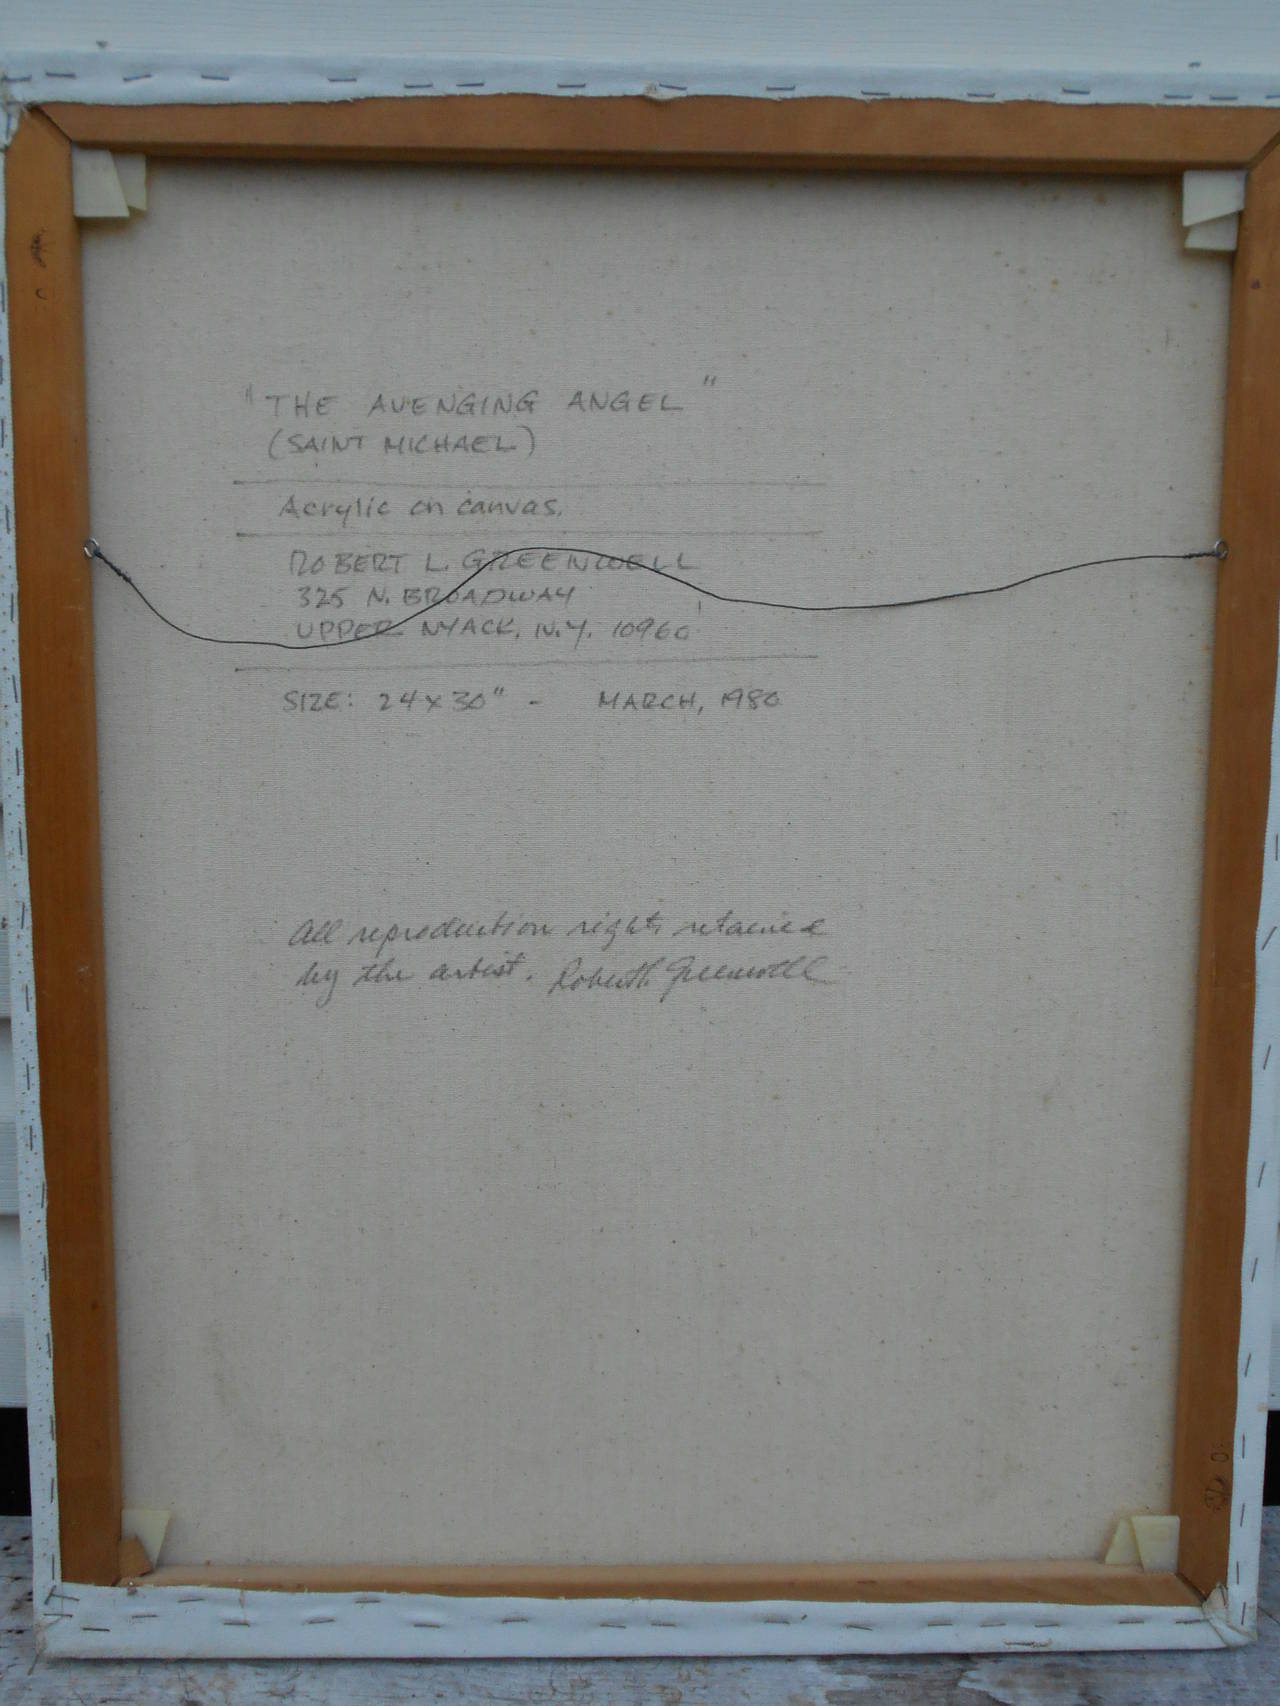 "THE AVENGING ANGEL"
(SAINT MICHAEL)
Acrylic on canvas.
ROBERT L. GREENWELL
325 N. BROADWAY
UPPER NYACK, N.Y. 10960
SIZE: 24 x 30" - MARCH, 1980
All reproduction rights retained
by the artist. Robert L. Greenwell